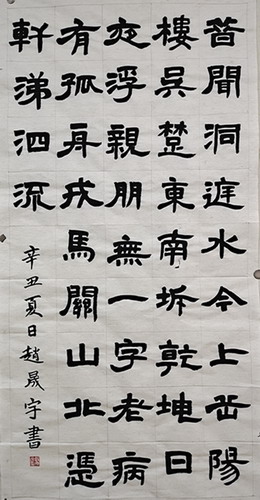 昔聞洞庭水今上岳陽
樓吳楚東南坼乾坤日
夜浮親朋無一字老病
有孤舟戎馬關山北憑
軒涕泗流
辛丑夏日趙晟宇書